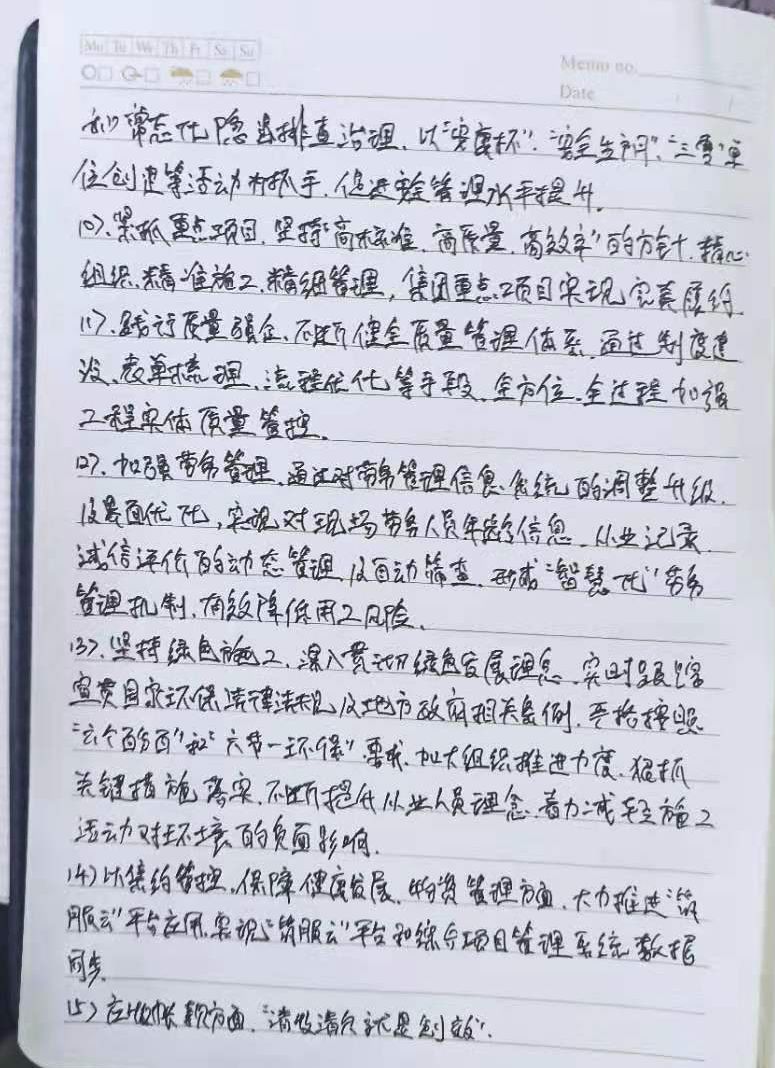 Mo Tu We Th Fr Sa Su
Memo no.
Date
和常态化隐患排查治理、以"安康杯"、"安全生产月"、"三零"单
位创建等活动为抓手,促进安全管理水平提升。
10)、紧抓重点项目,坚持"高标准、高质量、高效率"的方针,精心
组织、精准施工、精细管理,集团重点项目实现完美履约
11)、践行质量强企、不断健全质量管理体系,通过制度建
设、表单梳理、流程优化等手段、全方位、全过程加强
工程实体质量管控。
12)、加强劳务管理、通过对劳务管理信息系统的调整升级、
及界面优化,实现对现场劳务人员年龄信息、从业记录、
诚信评价的动态管理及自动筛查、形成"智慧化"劳务
管理机制,有效降低用工风险。
13)、坚持绿色施工、深入贯彻绿色发展理念、实时跟踪
宣贯国家环保法律法规及地方政府相关条例、严格按照
"六个百分百"和"六节一环保"要求、加大组织推进力度、狠抓
关键措施落实、不断提升从业人员理念、着力减轻施工
活动对环境的负面影响。
14)以集约管控、保障健康发展、物资管理方面、大力推进"筑
服云"平台应用,实现"筑服云"平台和综合项目管理系统数据
同步。
15)应收账款方面、"清收清欠就是创效"。